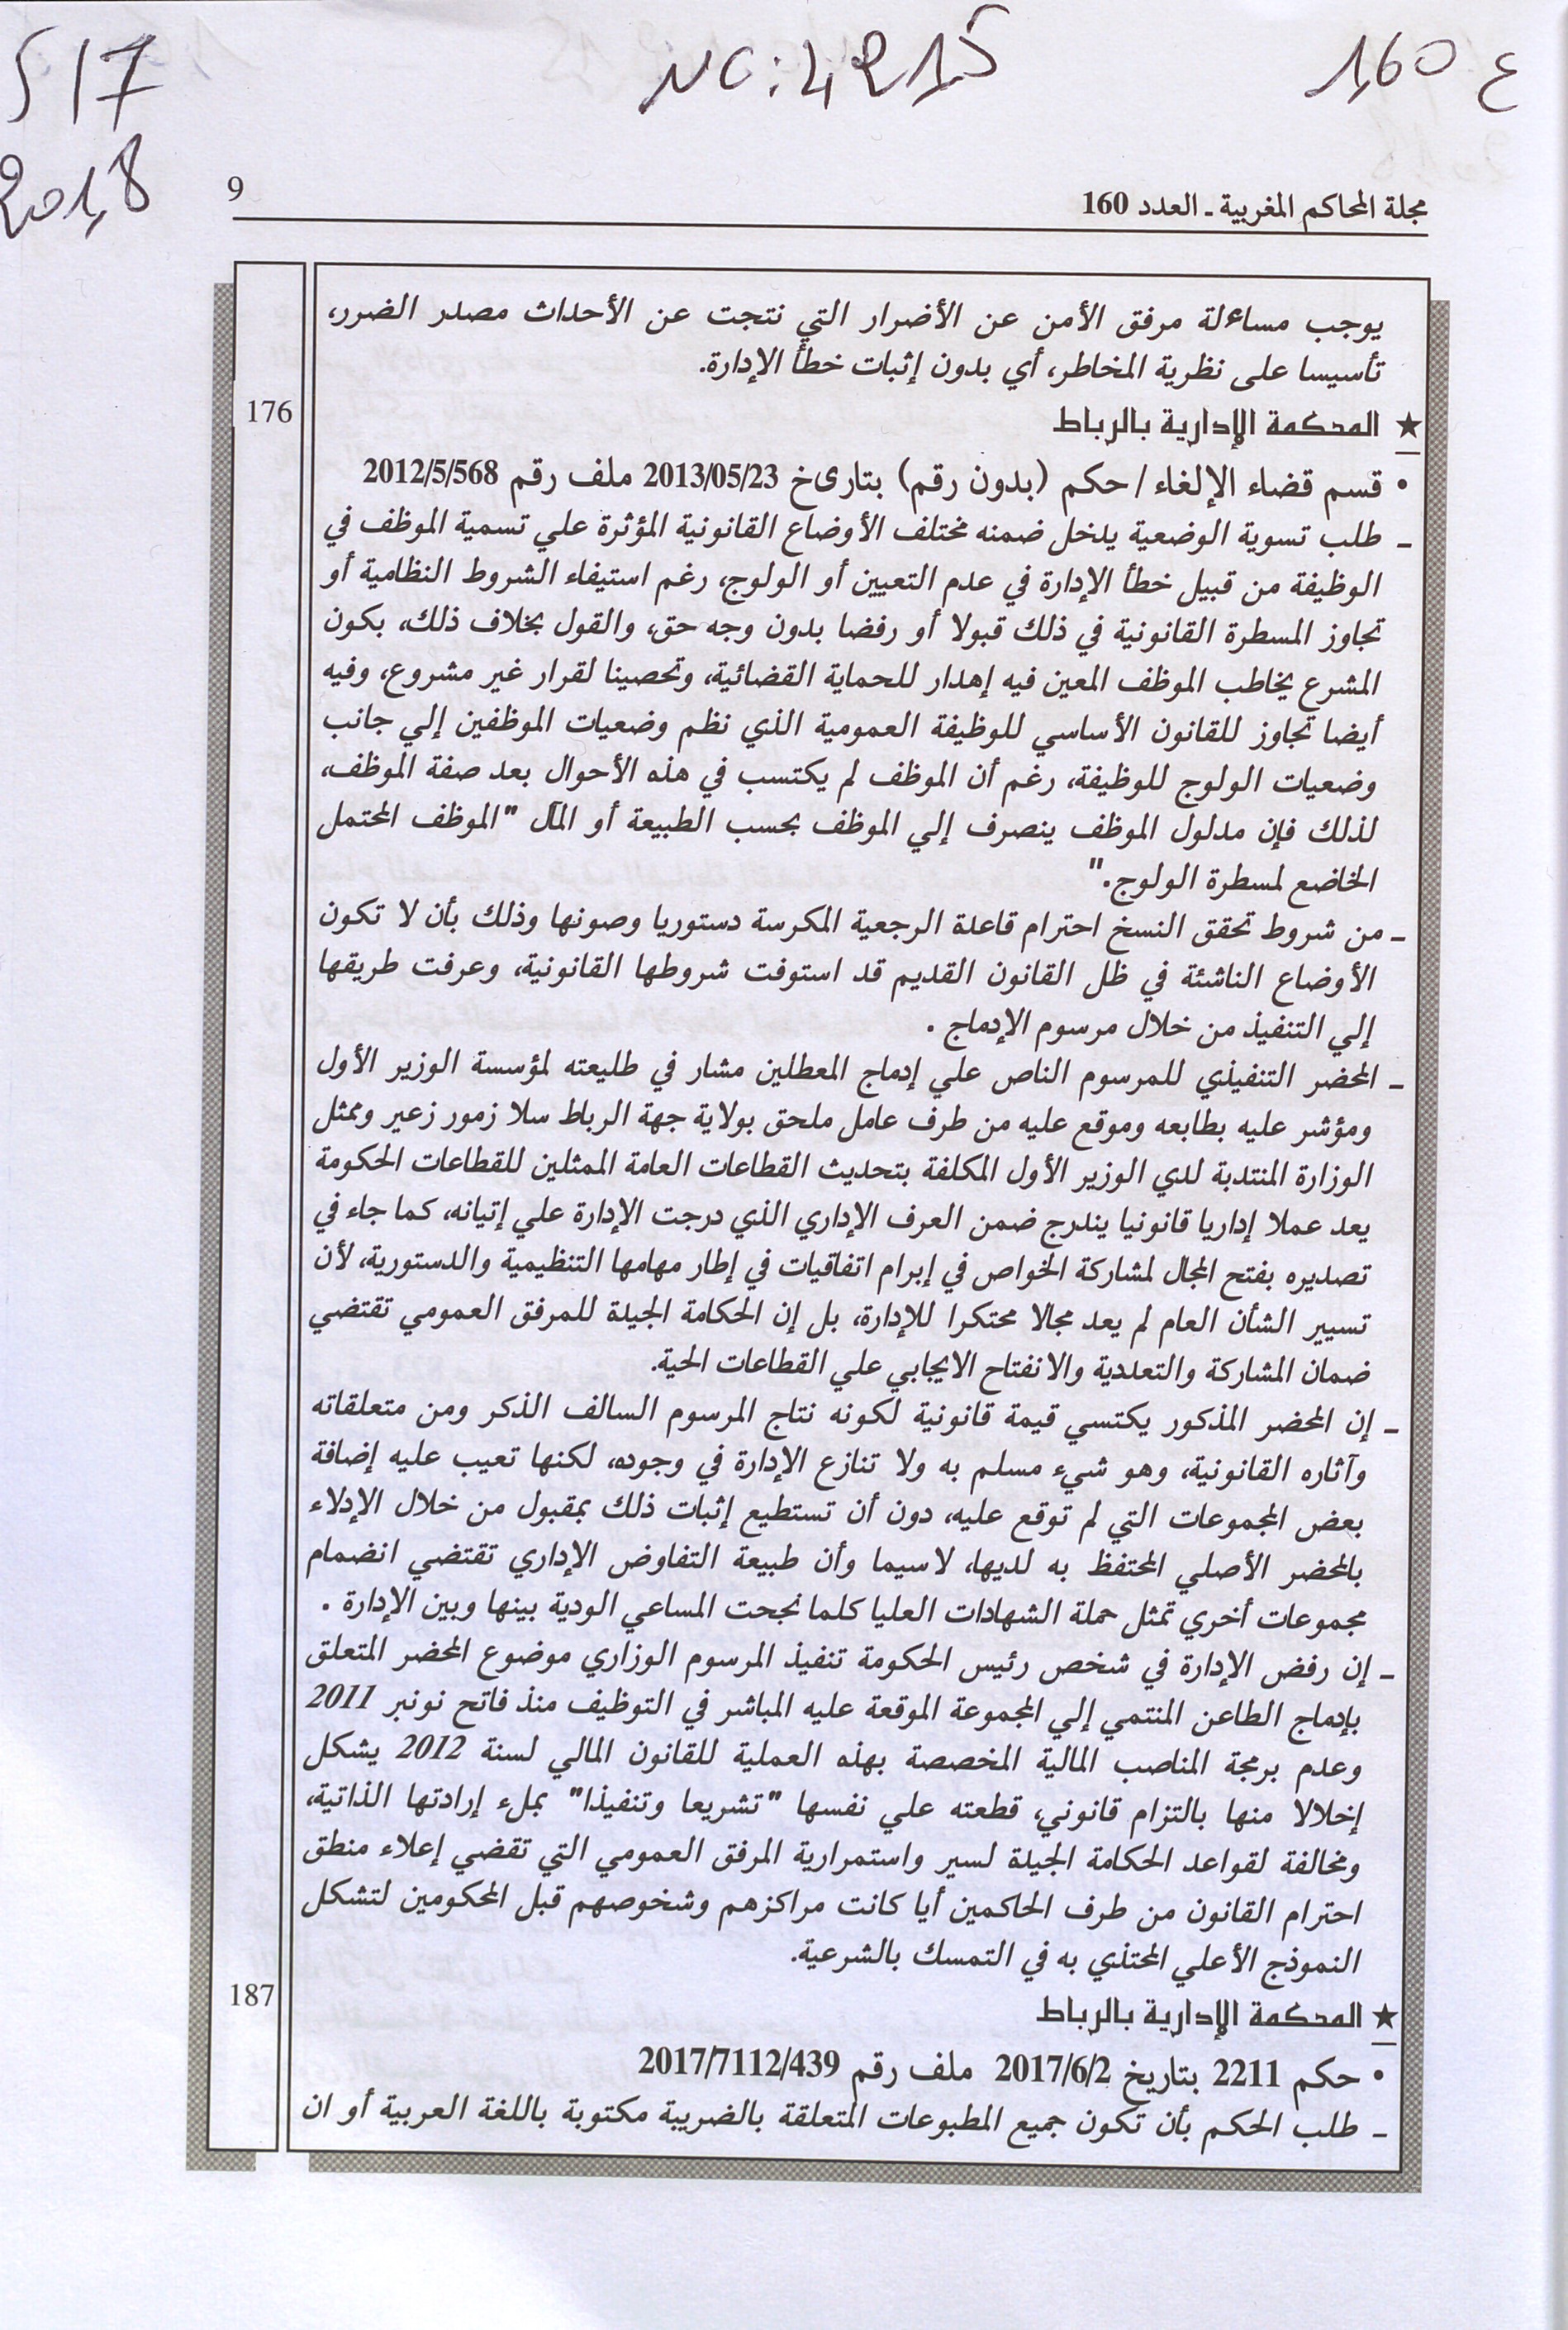 ع 1,60
NC: 4215
517
2018
مجلة المحاكم المغربية ـ العدد 160
9
يوجب مساءلة مرفق الأمن عن الأضرار التي نتجت عن الأحداث مصدر الضرر،
تأسيسا على نظرية المخاطر، أي بدون إثبات خطأ الإدارة.
★ المحكمة الإدارية بالرباط
176
• قسم قضاء الإلغاء / حكم (بدون رقم) بتارىخ 2013/05/23 ملف رقم 2012/5/568
ـ طلب تسوية الوضعية يدخل ضمنه مختلف الأوضاع القانونية المؤثرة علي تسمية الموظف في
الوظيفة من قبيل خطأ الإدارة في عدم التعيين أو الولوج، رغم استيفاء الشروط النظامية أو
تجاوز المسطرة القانونية في ذلك قبولا أو رفضا بدون وجه حق، والقول بخلاف ذلك، بكون
المشرع يخاطب الموظف المعين فيه إهدار للحماية القضائية، وتحصينا لقرار غير مشروع، وفيه
أيضا تجاوز للقانون الأساسي للوظيفة العمومية الذي نظم وضعيات الموظفين إلي جانب
وضعيات الولوج للوظيفة، رغم أن الموظف لم يكتسب في هذه الأحوال بعد صفة الموظف،
لذلك فإن مدلول الموظف ينصرف إلي الموظف بحسب الطبيعة أو المآل "الموظف المحتمل
الخاضع لمسطرة الولوج."
ـ من شروط تحقق النسخ احترام قاعدة الرجعية المكرسة دستوريا وصونها وذلك بأن لا تكون
الأوضاع الناشئة في ظل القانون القديم قد استوفت شروطها القانونية، وعرفت طريقها
إلي التنفيذ من خلال مرسوم الإدماج .
ـ المحضر التنفيذي للمرسوم الناص علي إدماج المعطلين مشار في طليعته لمؤسسة الوزير الأول
ومؤشر عليه بطابعه وموقع عليه من طرف عامل ملحق بولاية جهة الرباط سلا زمور زعير وممثل
الوزارة المنتدبة لدي الوزير الأول المكلفة بتحديث القطاعات العامة الممثلين للقطاعات الحكومة
يعد عملا إداريا قانونيا يندرج ضمن العرف الإداري الذي درجت الإدارة علي إتيانه، كما جاء في
تصديره بفتح المجال لمشاركة الخواص في إبرام اتفاقيات في إطار مهامها التنظيمية والدستورية، لأن
تسيير الشأن العام لم يعد مجالا محتكرا للإدارة، بل إن الحكامة الجيدة للمرفق العمومي تقتضي
ضمان المشاركة والتعددية والانفتاح الايجابي علي القطاعات الحية.
ـ إن المحضر المذكور يكتسي قيمة قانونية لكونه نتاج المرسوم السالف الذكر ومن متعلقاته
وآثاره القانونية، وهو شيء مسلم به ولا تنازع الإدارة في وجوده، لكنها تعيب عليه إضافة
بعض المجموعات التي لم توقع عليه، دون أن تستطيع إثبات ذلك بمقبول من خلال الإدلاء
بالمحضر الأصلي المحتفظ به لديها، لاسيما وأن طبيعة التفاوض الإداري تقتضي انضمام
مجموعات أخري تمثل حملة الشهادات العليا كلما نجحت المساعي الودية بينها وبين الإدارة .
ـ إن رفض الإدارة في شخص رئيس الحكومة تنفيذ المرسوم الوزاري موضوع المحضر المتعلق
بإدماج الطاعن المنتمي إلي المجموعة الموقعة عليه المباشر في التوظيف منذ فاتح نونبر 2011
وعدم برمجة المناصب المالية المخصصة بهذه العملية للقانون المالي لسنة 2012 يشكل
إخلالا منها بالتزام قانوني، قطعته علي نفسها "تشريعا وتنفيذا" بملء إرادتها الذاتية،
ومخالفة لقواعد الحكامة الجيدة لسير واستمرارية المرفق العمومي التي تقضي إعلاء منطق
احترام القانون من طرف الحاكمين أيا كانت مراكزهم وشخوصهم قبل المحكومين لتشكل
النموذج الأعلي المحتذي به في التمسك بالشرعية.
★ المحكمة الإدارية بالرباط
187
• حكم 2211 بتاريخ 2017/6/2 ملف رقم 2017/7112/439
ـ طلب الحكم بأن تكون جميع المطبوعات المتعلقة بالضريبة مكتوبة باللغة العربية أو ان